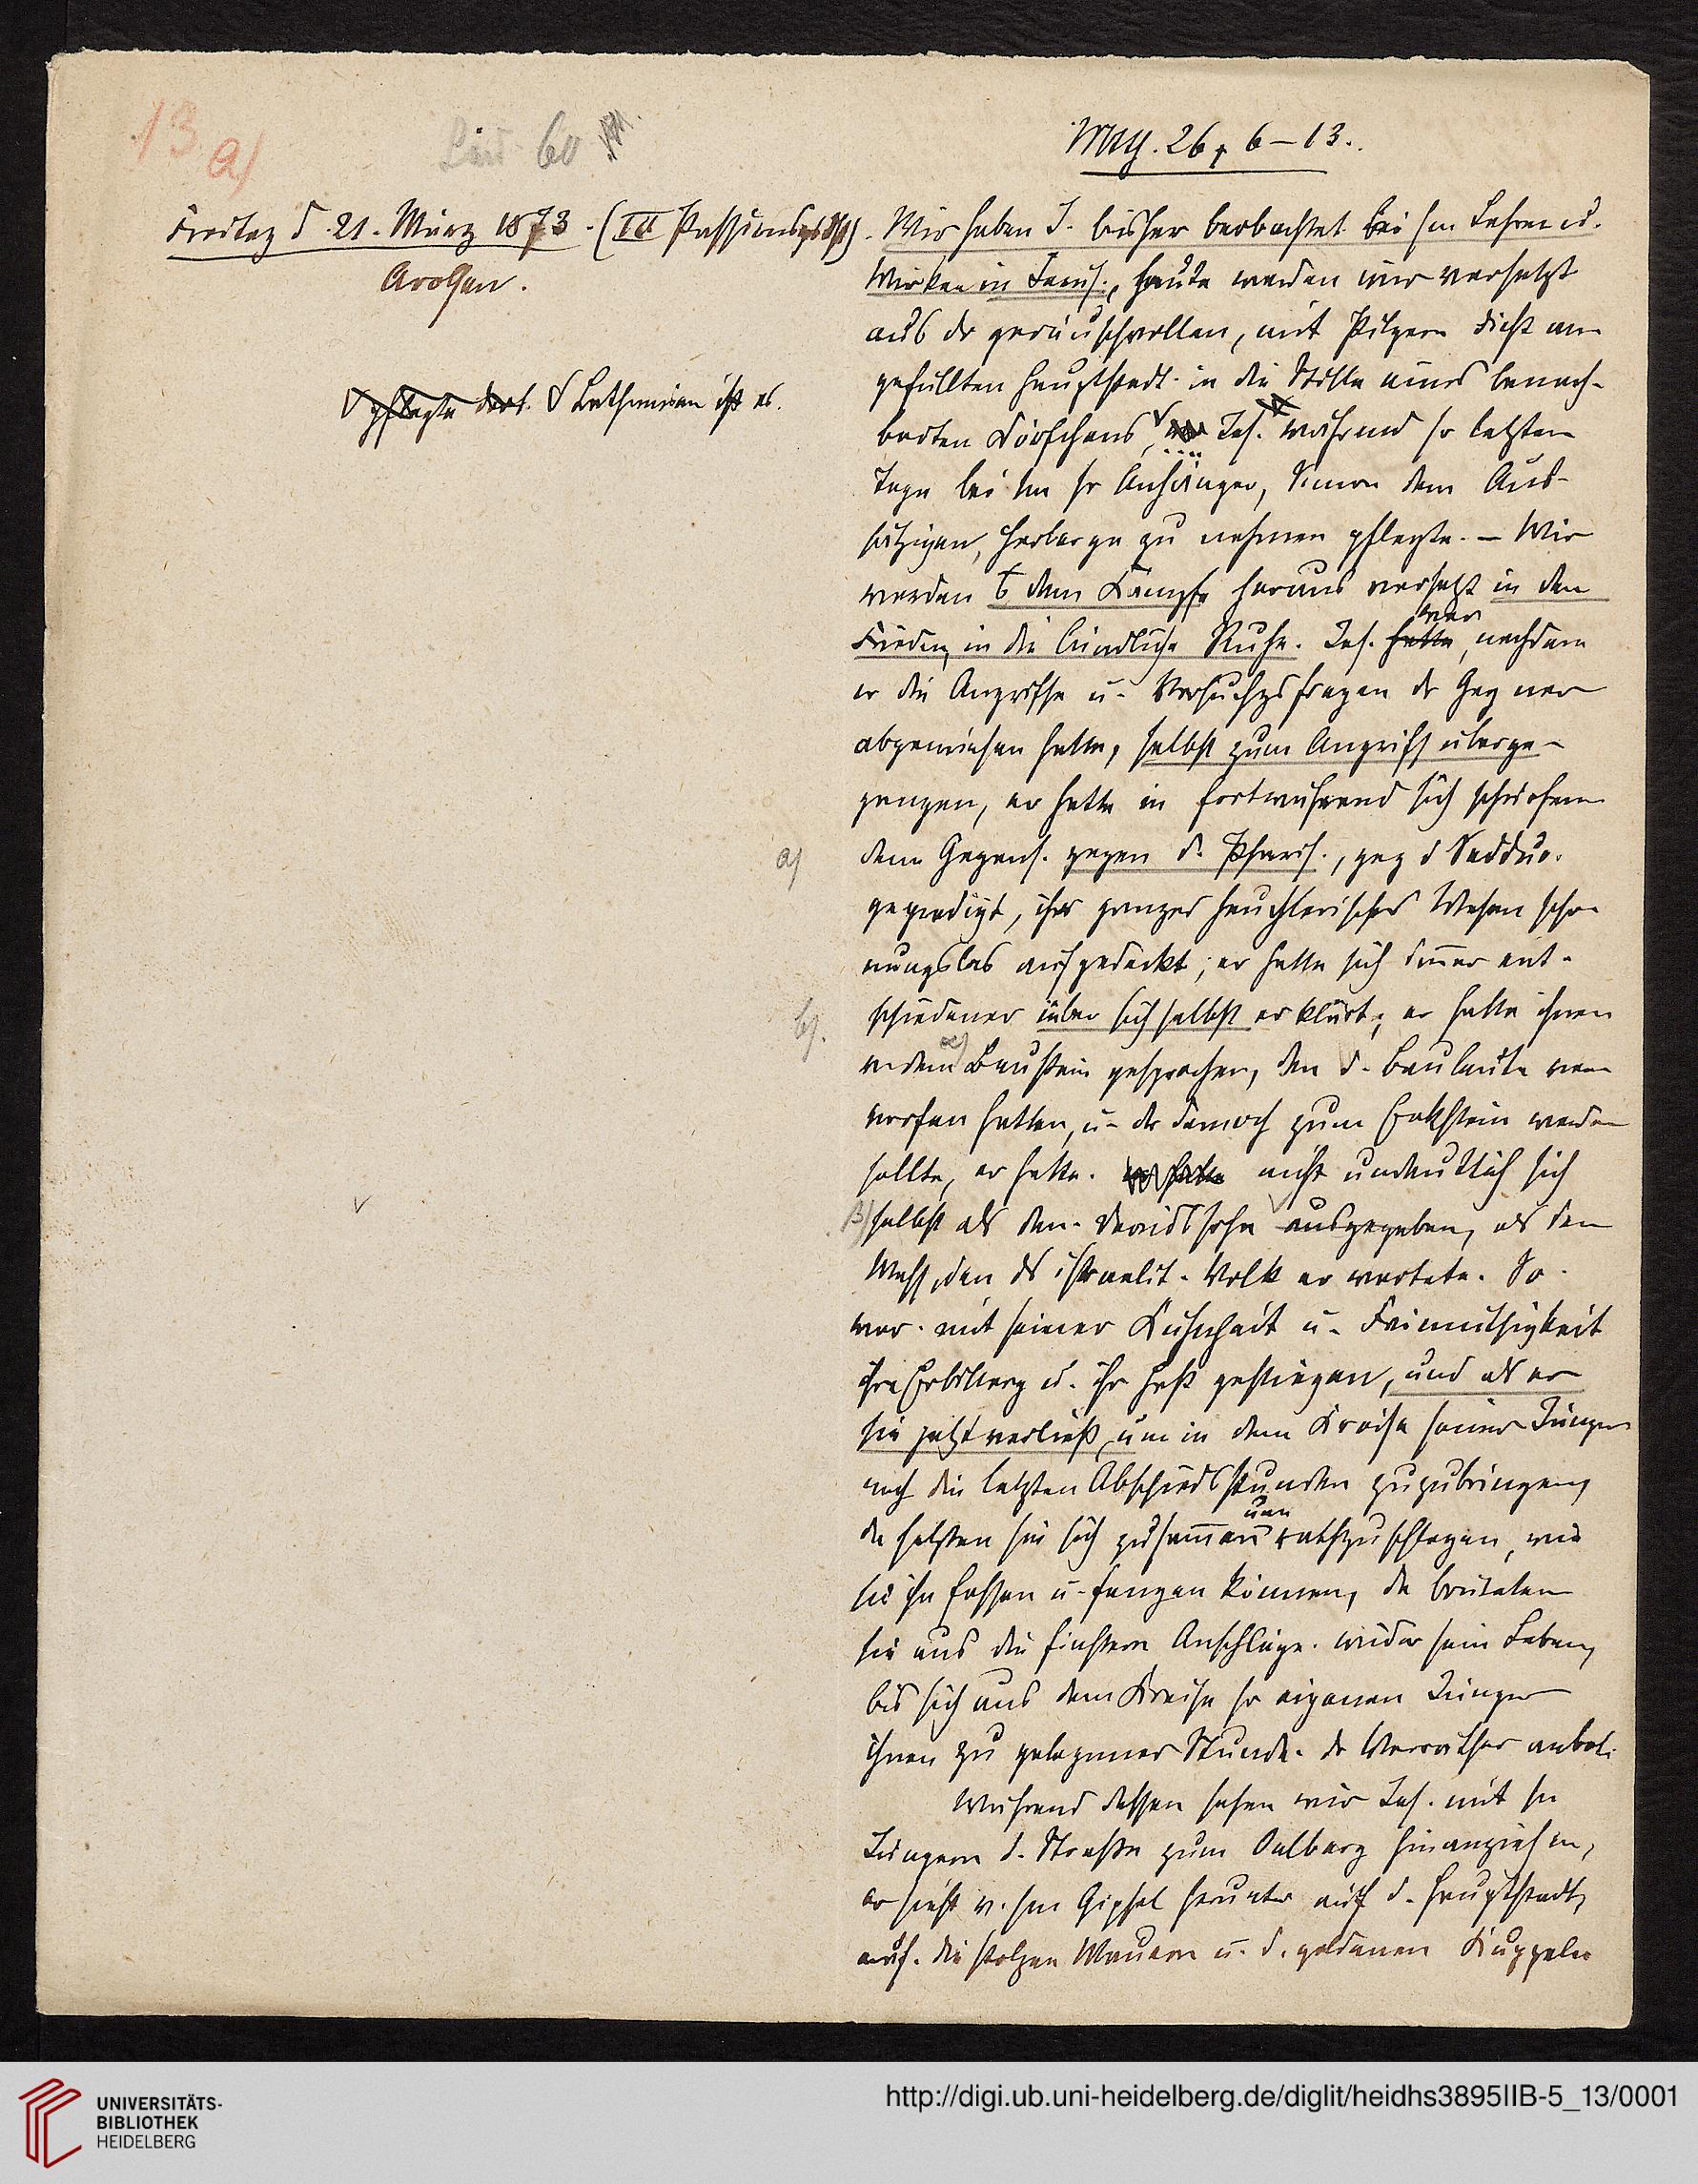 13 a)
Lied 60
Matth. 26, 6–13.
Freitag d. 21. März 1873. (III Passionsgd)
Arolsen.
Wir haben J. bisher beobachtet bei sm Lehren u.
Wirken in Jerus., heute werden wir versetzt
aus dr geräuschvollen, mit Pilgern dicht an-
gefüllten Hauptstadt in die Stille eines benach-
pflegte dort. Bethanien ist es.
barten Dörfchens, wo Jes. während sr letzten
Tage bei sm sr Anhänger, Simon dem Aus-
sätzigen, Herberge zu nehmen pflegte. – Wir
werden dem Kampfe heraus versetzt in den
Frieden, in die ländliche Ruhe. Jes. hatte, nachdem
war
er die Angriffe u. Versuchgsfragen dr Gegner
abgewiesen hatte, selbst zum Angriff überge-
gangen, er hatte in fortwährend sich schärfen-
a)
dem Gegens. gegen d. Pharis., geg d Sadduc.
gepredigt, ihr ganzes heuchlerisches Wesen scho-
nungslos aufgedeckt; er hatte sich immer ent-
b).
schiedener über sich selbst erklärt; er hatte ihnen
α)
v. dem Baustein gesprochen, den d. Bauleute ver-
worfen hatten, u. der dennoch zum Eckstein werden
sollte, er hatte. er hatte nicht undeutlich sich
β) selbst als den Davidssohn ausgegeben, als den
Mess, den ds israelit. Volk erwartete. So
war mit seiner Kühnheit u. Freimüthigkeit
ihre Erbitterg u. ihr Haß gestiegen, und als er
sie jetzt verließ, um in dem Kreise seiner Jünger
noch die letzten Abschiedsstunden zuzubringen,
da setzten sie sich zusammen rathzuschlagen, wie
um
sie ihn fassen u. fangen können, da brüteten
sie aus die finstern Anschläge wider sein Leben,
bis sich aus dem Kreise sr eigenen Jünger
ihnen zu gelegener Stunde dr Verräther anbot.
Während dessen sehen wir Jes. mit sn
Jüngern d. Straße zum Oelberg hinanziehen,
er sieht v. sm Gipfel herunter auf d. Hauptstadt,
auf die stolzen Mauern u. d. goldenen Kuppeln
UNIVERSITÄTS-
BIBLIOTHEK
HEIDELBERG
http://digi.ub.uni-heidelberg.de/diglit/heidhs3895IIB-5_13/0001